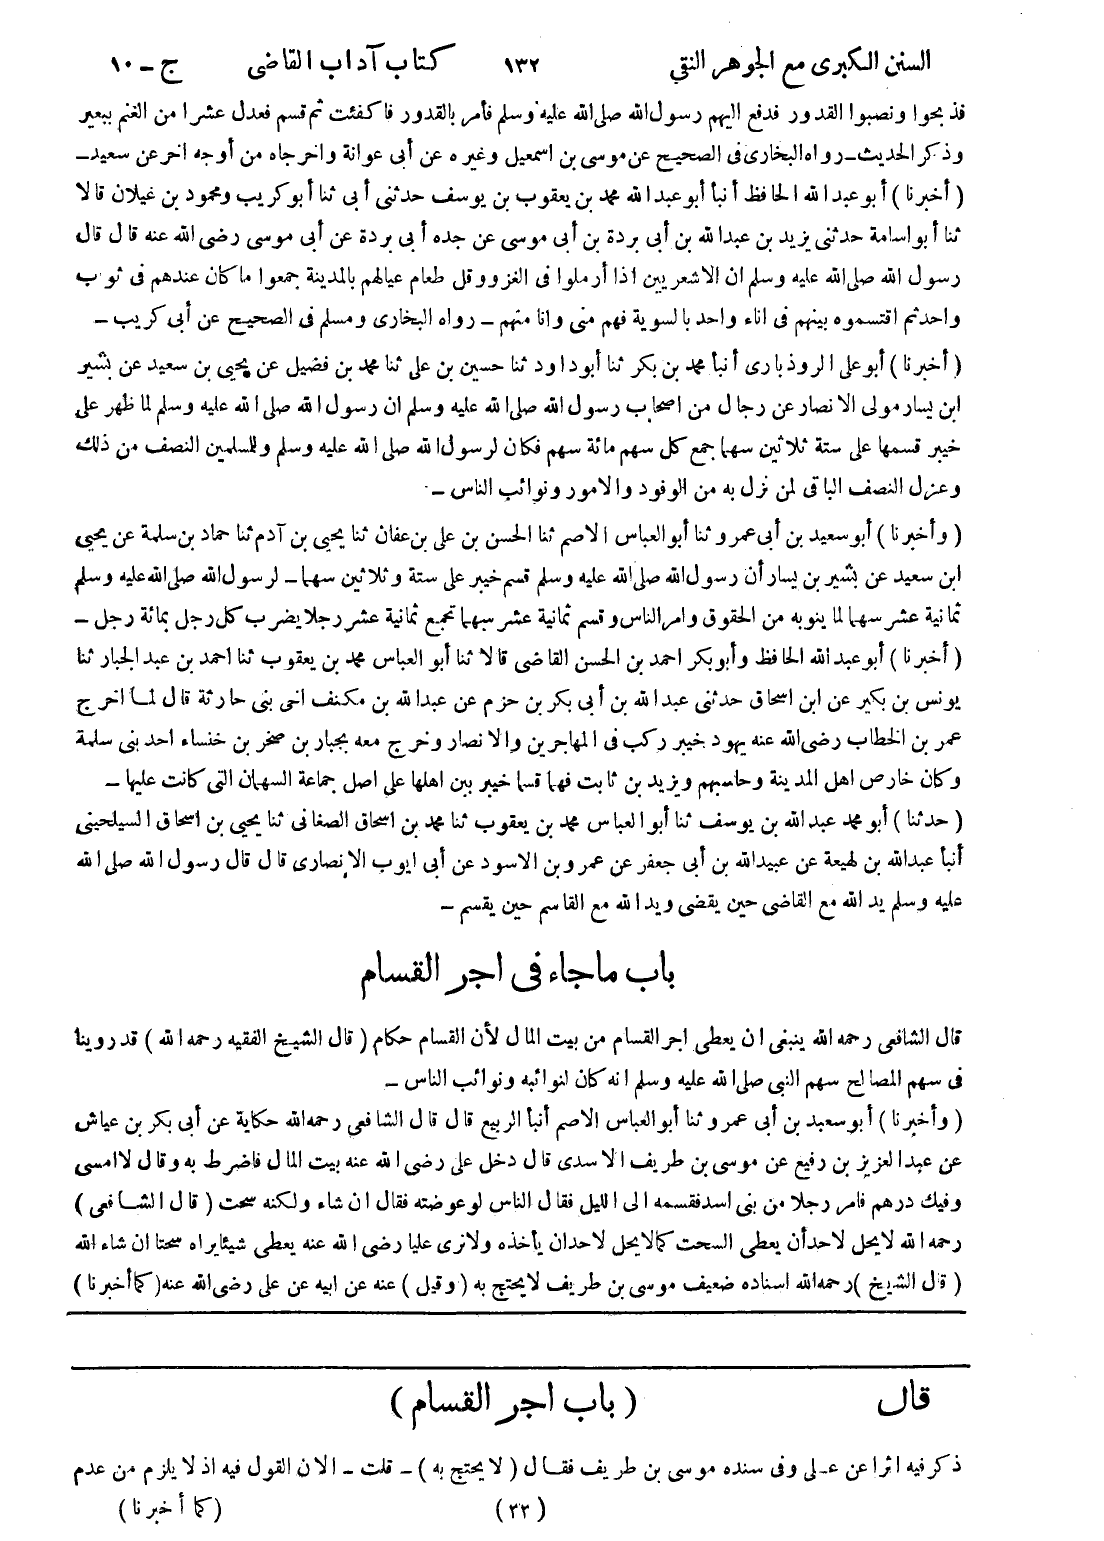 السنن الكبرى مع الجوهر النقي ١٣٢ كتاب آداب القاضى ج ـ ١٠
فذبحوا ونصبوا القدور فدفع اليهم رسول الله صلى الله عليه وسلم فأمر بالقدور فاكفئت ثم قسم فعدل عشرا من الغنم ببعير
وذكر الحديث ـ رواه البخارى فى الصحيح عن موسى بن اسمعيل وغيره عن أبى عوانة واخرجاه من أوجه اخر عن سعيد ـ
( أخبرنا ) أبو عبد الله الحافظ أنبأ أبو عبد الله محمد بن يعقوب بن يوسف حدثنى أبى ثنا أبو كريب ومحمود بن غيلان قالا
ثنا أبو اسامة حدثنى يزيد بن عبد الله بن أبى بردة بن أبى موسى عن جده أبى بردة عن أبى موسى رضى الله عنه قال قال
رسول الله صلى الله عليه وسلم ان الاشعريين اذا أرملوا فى الغزو وقل طعام عيالهم بالمدينة جمعوا ما كان عندهم فى ثوب
واحد ثم اقتسموه بينهم فى اناء واحد بالسوية فهم منى وانا منهم ـ رواه البخارى ومسلم فى الصحيح عن أبى كريب ـ
( أخبرنا ) أبو على الروذبارى أنبأ محمد بن بكر ثنا أبو داود ثنا حسين بن على ثنا محمد بن فضيل عن يحيى بن سعيد عن بشير
ابن يسار مولى الانصار عن رجال من اصحاب رسول الله صلى الله عليه وسلم ان رسول الله صلى الله عليه وسلم لما ظهر على
خيبر قسمها على ستة ثلاثين سهما جمع كل سهم مائة سهم فكان لرسول الله صلى الله عليه وسلم وللمسلمين النصف من ذلك
وعزل النصف الباقى لمن نزل به من الوفود والامور ونوائب الناس ـ
( وأخبرنا ) أبو سعيد بن أبى عمرو ثنا أبو العباس الاصم ثنا الحسن بن على بن عفان ثنا يحيى بن آدم ثنا حماد بن سلمة عن يحيى
ابن سعيد عن بشير بن يسار أن رسول الله صلى الله عليه وسلم قسم خيبر على ستة وثلاثين سهما ـ لرسول الله صلى الله عليه وسلم
ثمانية عشر سهما لما ينوبه من الحقوق وامر الناس وقسم ثمانية عشر سهما تجمع ثمانية عشر رجلا يضرب كل رجل بمائة رجل ـ
( أخبرنا ) أبو عبد الله الحافظ وأبو بكر احمد بن الحسن القاضى قالا ثنا أبو العباس محمد بن يعقوب ثنا احمد بن عبد الجبار ثنا
يونس بن بكير عن ابن اسحاق حدثنى عبد الله بن أبى بكر بن حزم عن عبد الله بن مكنف اخى بنى حارثة قال لما اخرج
عمر بن الخطاب رضى الله عنه يهود خيبر ركب فى المهاجرين والانصار وخرج معه بجبار بن صخر بن خنساء احد بنى سلمة
وكان خارص اهل المدينة وحاسبهم ويزيد بن ثابت فهما قسما خيبر بين اهلها على اصل جماعة السهمان التى كانت عليها ـ
( حدثنا ) أبو محمد عبد الله بن يوسف ثنا أبو العباس محمد بن يعقوب ثنا محمد بن اسحاق الصغانى ثنا يحيى بن اسحاق السيلحينى
أنبأ عبد الله بن لهيعة عن عبيد الله بن أبى جعفر عن عمرو بن الاسود عن أبى ايوب الانصارى قال قال رسول الله صلى الله
عليه وسلم يد الله مع القاضى حين يقضى ويد الله مع القاسم حين يقسم ـ
باب ما جاء فى اجر القسام
قال الشافعى رحمه الله ينبغى ان يعطى اجر القسام من بيت المال لأن القسام حكام ( قال الشيخ الفقيه رحمه الله ) قد روينا
فى سهم المصالح سهم النبى صلى الله عليه وسلم انه كان لنوائبه ونوائب الناس ـ
( وأخبرنا ) أبو سعيد بن أبى عمرو ثنا أبو العباس الاصم أنبأ الربيع قال قال الشافعى رحمه الله حكاية عن أبى بكر بن عياش
عن عبد العزيز بن رفيع عن موسى بن طريف الاسدى قال دخل على رضى الله عنه بيت المال فاضرط به وقال لا امسى
وفيك درهم فامر رجلا من بنى اسد فقسمه الى الليل فقال الناس لو عوضته فقال ان شاء ولكنه سحت ( قال الشافعى )
رحمه الله لا يحل لاحد أن يعطى السحت كما لا يحل لاحد ان يأخذه ولا نرى عليا رضى الله عنه يعطى شيئا يراه سحتا ان شاء الله
( قال الشيخ ) رحمه الله اسناده ضعيف موسى بن طريف لا يحتج به ( وقيل ) عنه عن ابيه عن على رضى الله عنه ( كما أخبرنا )
قال ( باب اجر القسام )
ذكر فيه اثرا عن على وفى سنده موسى بن طريف فقال ( لا يحتج به ) ـ قلت ـ الان القول فيه اذ لا يلزم من عدم
(٣٣) ( كما أخبرنا )